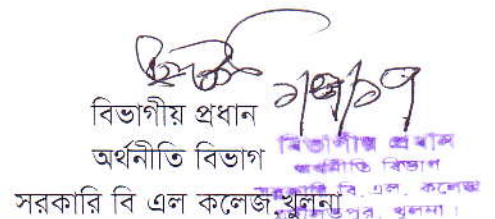 বিভাগীয় প্রধান
অর্থনীতি বিভাগ
সরকারি বি এল কলেজ খুলনা
বিভাগীয় প্রধান
অর্থনীতি বিভাগ
সরকারি বি. এল. কলেজ
দৌলতপুর, খুলনা।